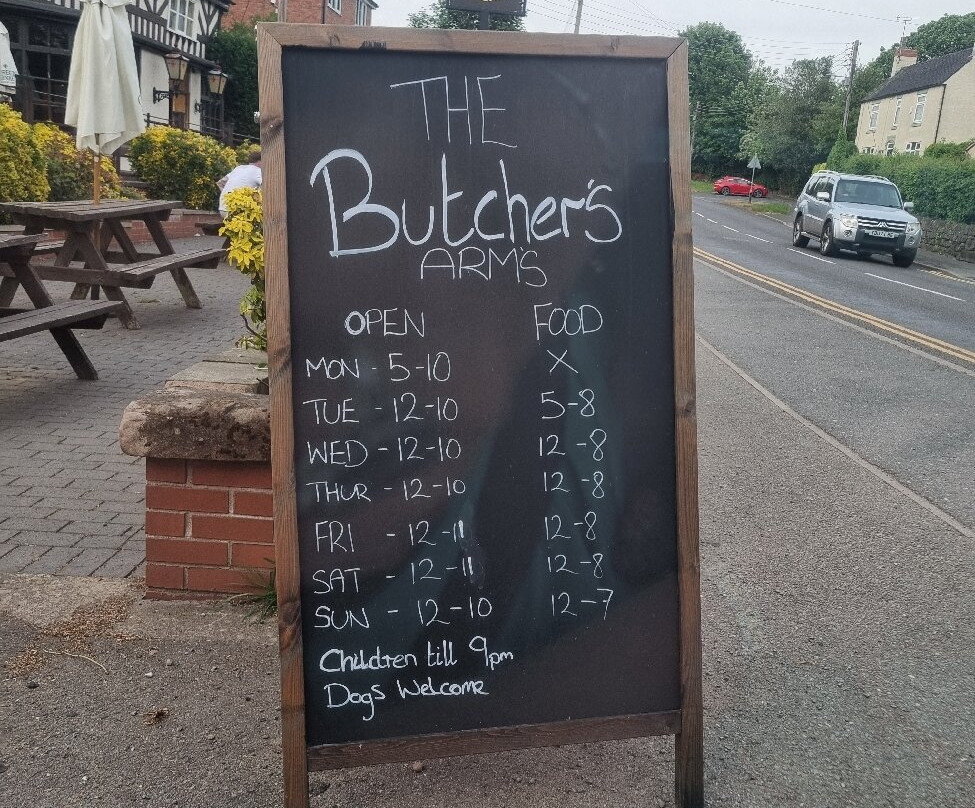 THE
Butcher's
ARM'S
OPEN FOOD
MON - 5-10 X
TUE - 12-10 5-8
WED - 12-10 12-8
THUR - 12-10 12-8
FRI - 12-11 12-8
SAT - 12-11 12-8
SUN - 12-10 12-7
Children till 9pm
Dogs Welcome